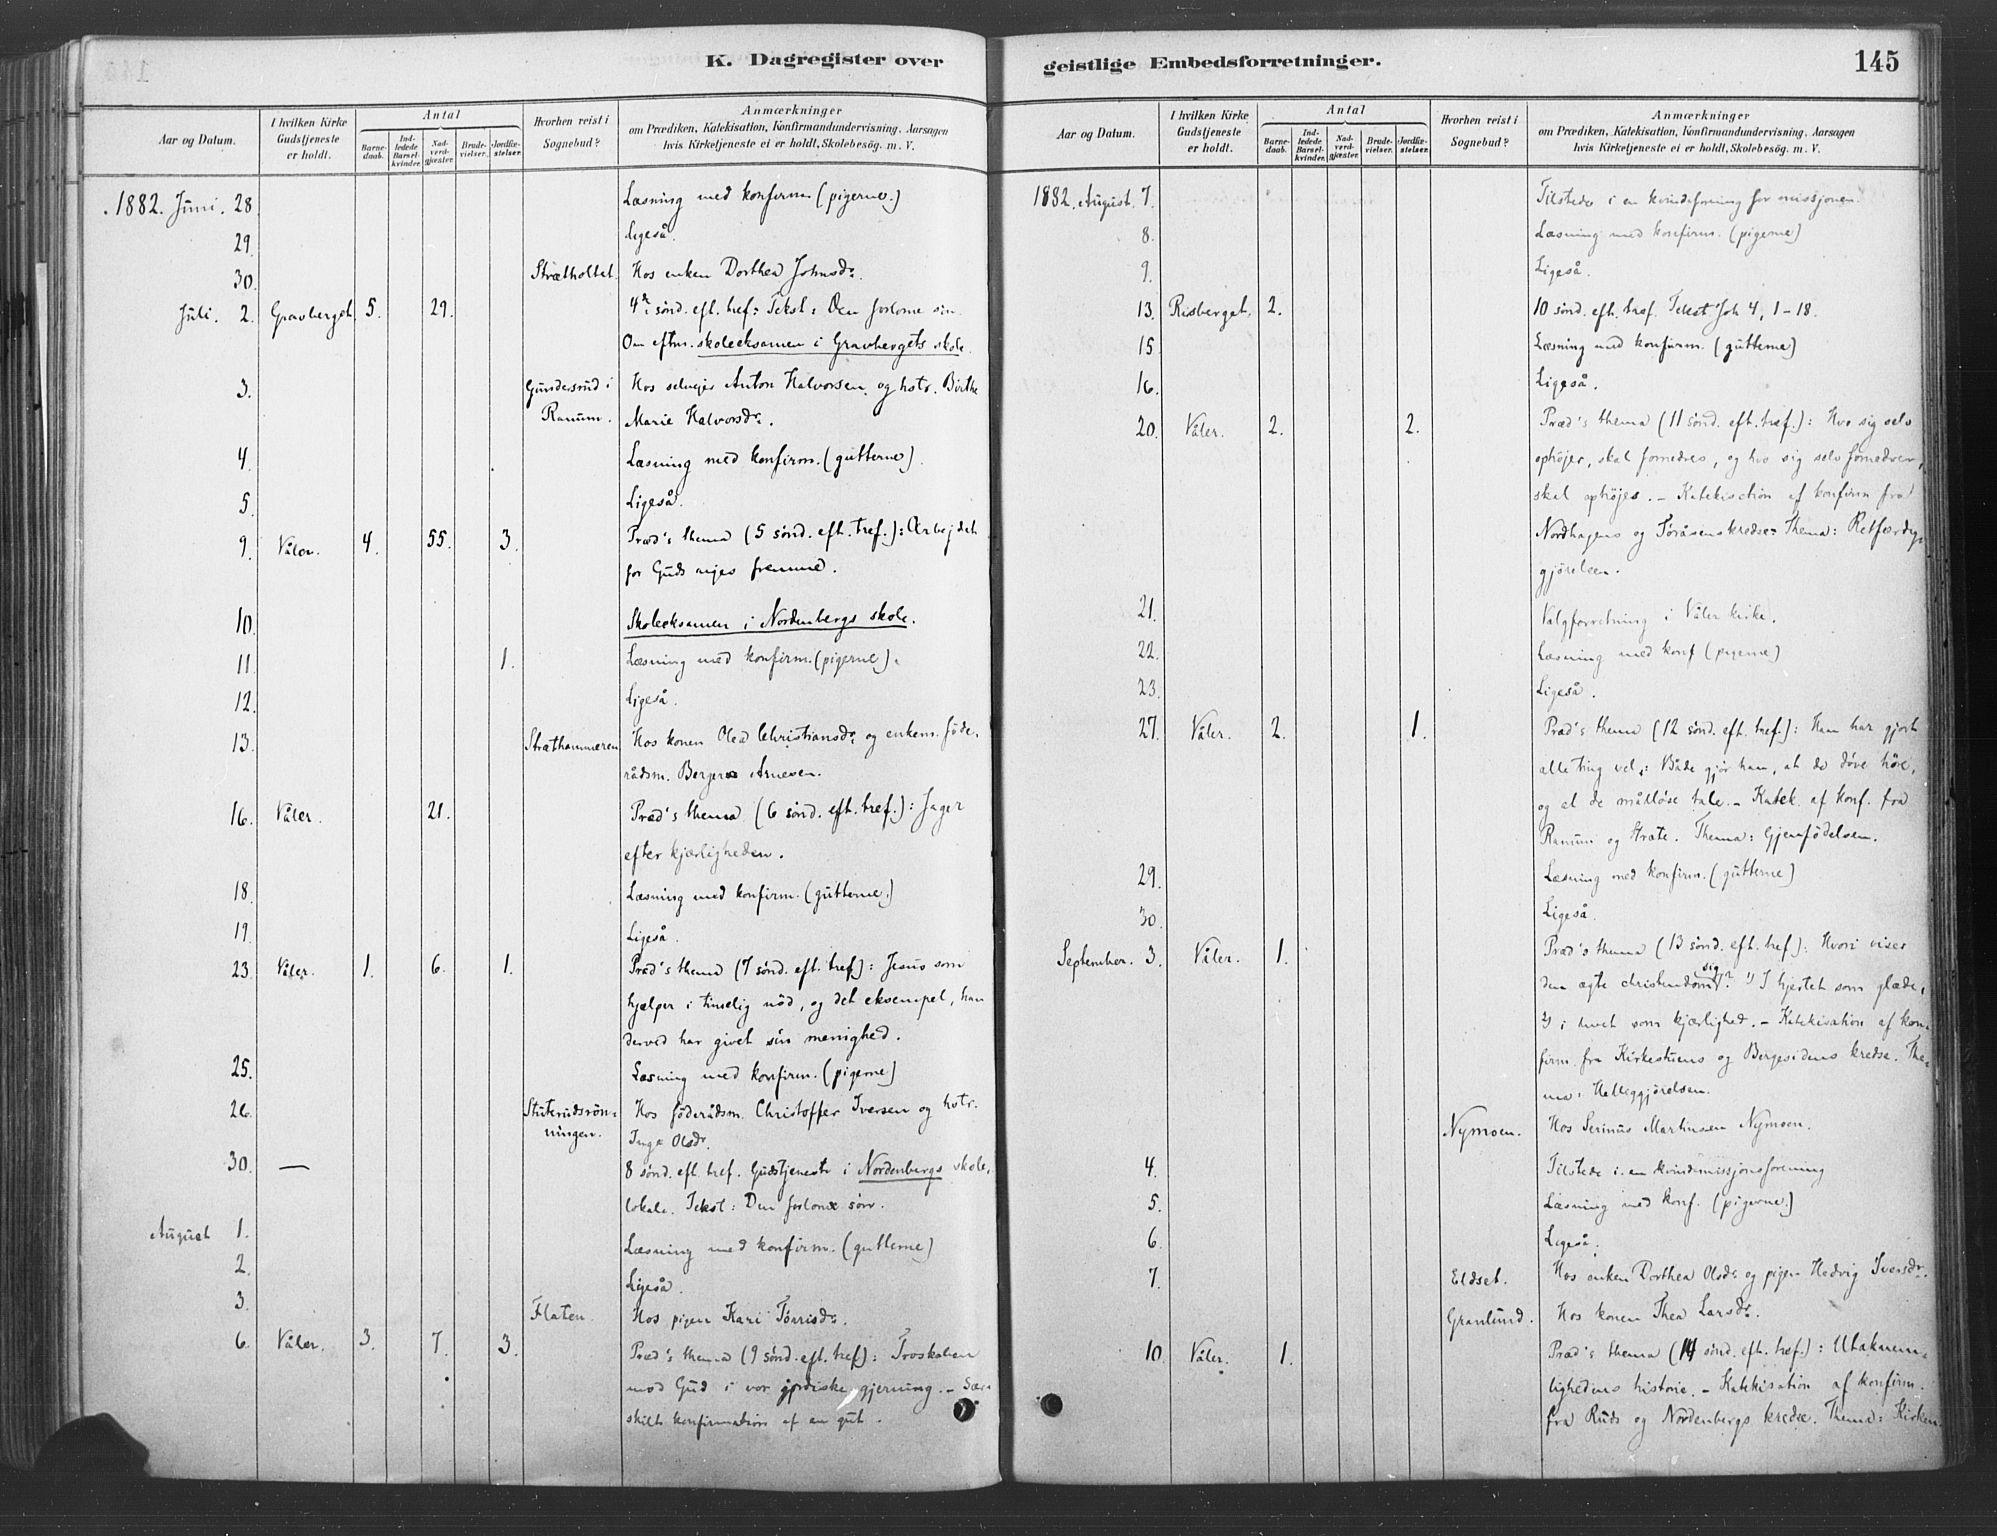 K. Dagregister over
Aar og Datum.
I hvilken Kirke Gudstjeneste er holdt.
Antal
Barne-daab.
Ind-ledede Barsel-kvinder.
Nad-verd-gjæster.
Brude-vielser.
Jordfæ-stelser.
Hvorhen reist i Sognebud?
Anmærkninger
om Prædiken, Katekisation, Konfirmandundervisning, Aarsagen
hvis Kirketjeneste ei er holdt, Skolebesøg. m. V.
1882. Juni. 28. Læsning med konfirm. (pigerne.)
29. Ligeså.
30. Strætholtet. Hos enken Dorthea Johnsdr.
Juli. 2. Gravberget. 5. 29. 4de sönd. eft. tref: Tekst: Den forlorne sön.
Om eftm. skoleeksamen i Gravbergets skole.
3. Gundersrud i Hos selvejer Anton Halvorsen og hstr. Birthe
Ranum. Marie Halvorsdr.
4. Læsning med konfirm. (gutterne).
5. Ligeså.
9. Våler. 4. 55. 3. Præd's thema (5 sönd. eft. tref.): Arbejdet
for Guds riges fremme.
10. Skoleeksamen i Nordenbergs skole.
11. 1. Læsning med konfirm. (pigerne).
12. Ligeså.
13. Stræthammeren Hos konen Olea Christiansdr. og enkem. föde-
rådsm. Berger Arnesen.
16. Våler. 21. Præd's thema (6 sönd. eft. tref.): Jager
efter kjærligheden.
18. Læsning med konfirm. (gutterne.)
19. Ligeså.
23. Våler. 1. 6. 1. Præd's thema (7 sönd. eft. tref): Jesus som
hjælper i timelig nöd, og det eksempel, han
derved har givet sin menighed.
25. Læsning med konfirm. (pigerne)
26. Stuterudsrön- Hos föderådsm. Christoffer Iversen og hstr.
ningen. Inga Olsdr.
30. — 8 sönd. eft. tref. Gudstjeneste i Nordenbergs skole-
lokale. Tekst: Den forlorne sön.
August 1. Læsning med konfirm. (gutterne)
2. Ligeså.
3. Flaten. Hos pigen Kari Törrisdr.
6. Våler. 3. 7. 3. Præd's thema (9 sönd. eft. tref): Troskaben
mod Gud i vor jordiske gjerning. – Sær-
skilt konfirmation af en gut.
geistlige Embedsforretninger.
145
Aar og Datum.
I hvilken Kirke Gudstjeneste er holdt.
Antal
Barne-daab.
Ind-ledede Barsel-kvinder.
Nad-verd-gjæster.
Brude-vielser.
Jordfæ-stelser.
Hvorhen reist i Sognebud?
Anmærkninger
om Prædiken, Katekisation, Konfirmandundervisning, Aarsagen
hvis Kirketjeneste ei er holdt, Skolebesøg. m. V.
1882. August. 7. Tilstede i en kvindeforening for missjonen.
8. Læsning med konfirm. (pigerne)
9. Ligeså.
13. Risberget. 2. 10 sönd. eft. tref. Tekst Joh 4, 1–18.
15. Læsning med konfirm. (gutterne)
16. Ligeså.
20. Våler. 2. 2. Præd's thema (11 sönd. eft. tref.): Hvo sig selv
ophöjer, skal fornedres, og hvo sig selv fornedrer,
skal ophöjes. – Katekisation af konfirm fra
Nordhagens og Töråsens kredse. Thema: Retfærdig-
gjörelsen.
21. Valgforretning i Våler kirke.
22. Læsning med konf (pigerne)
23. Ligeså.
27. Våler. 2. 1. Præd's thema (12 sönd. eft. tref.): Han har gjort
alle ting vel: Både gjör han, at de döve höre,
og at de målløse tale. – Katek. af konf. fra
Ranum og Stræte. Thema: Gjenfödelsen.
29. Læsning med konfirm. (gutterne)
30. Ligeså.
September. 3. Våler. 1. Præd's thema (13 sönd. eft. tref): Hvori viser
den ægte christendom sig? 1) I hjertet som glæde,
2) i livet som kjærlighed. – Katekisation af kon-
firm. fra Kirkestuens og Bergesidens kredse. The-
ma: Helliggjörelsen.
Nymoen. Hos Serinus Martinsen Nymoen.
4. Tilstede i en kvindemissjonsforening
5. Læsning med konf. (pigerne)
6. Ligeså.
7. Eldset. Hos enken Dorthea Olsdr. og pigen Hedvig Iversdr.
Granlund. Hos konen Thea Larsdr.
10. Våler. 1. Præd's thema (14 sönd. eft. tref.): Utaknem-
lighedens historie. – Katekisation af konfirm.
fra Ruds og Nordenbergs kredse. Thema: Kirken.